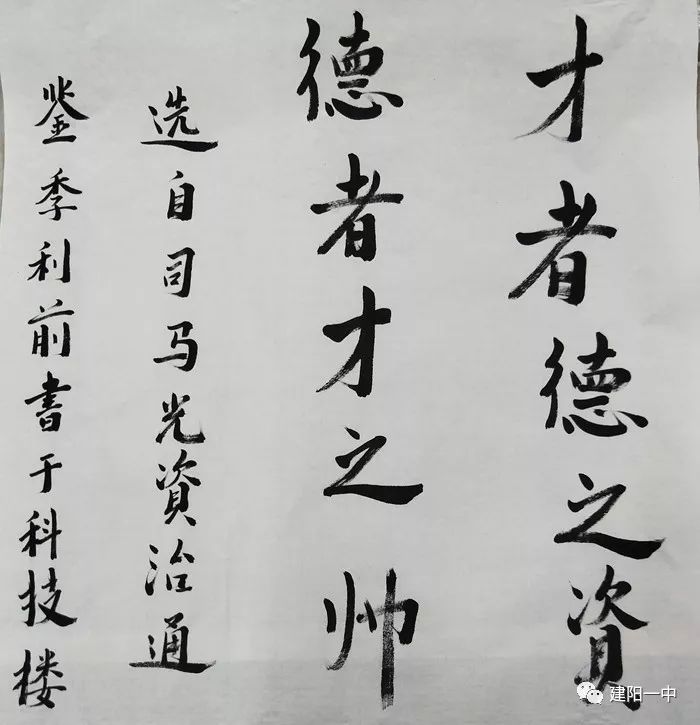 才者德之資
德者才之帅
选自司马光資治通
鉴季利前書于科技楼
建阳一中